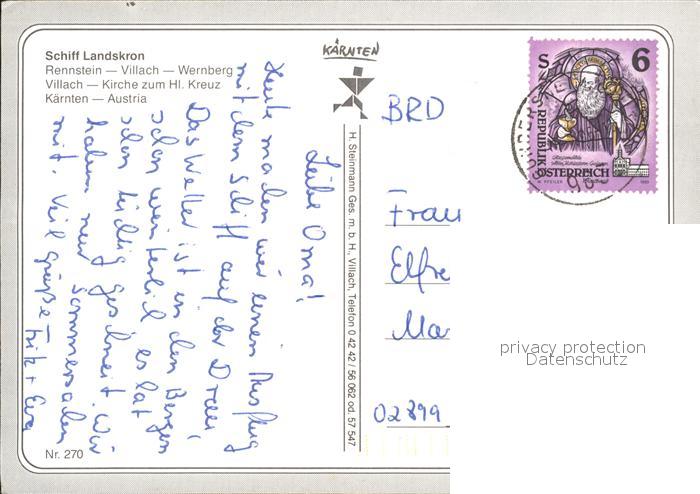 Schiff Landskron
Rennstein — Villach — Wernberg
Villach — Kirche zum Hl. Kreuz
Kärnten — Austria
KÄRNTEN
Liebe Oma!
Heute machen wir einen Ausflug
mit dem Schiff auf der Drau.
Das Wetter ist in den Bergen
schon winterlich es hat
schon tüchtig geschneit. Wir
haben nur Sommersachen
mit. Viel Grüße –
Fritz + Eva
H. Steinmann Ges. m. b. H., Villach, Telefon 0 42 42 / 56 062 od. 57 547
BRD
Frau
Elfre
Ma
02899
S 6
REPUBLIK
ÖSTERREICH
privacy protection
Datenschutz
Nr. 270